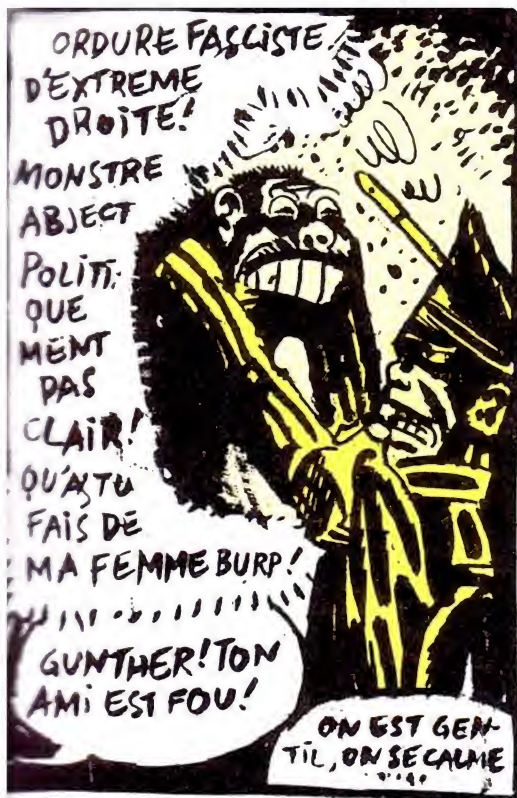 ORDURE FASCISTE!
D'EXTREME
DROITE!
MONSTRE
ABJECT
POLITI-
QUE
MENT
PAS
CLAIR!
QU'AS TU
FAIS DE
MA FEMME BURP!
GUNTHER! TON
AMI EST FOU!
ON EST GEN-
TIL, ON SE CALME